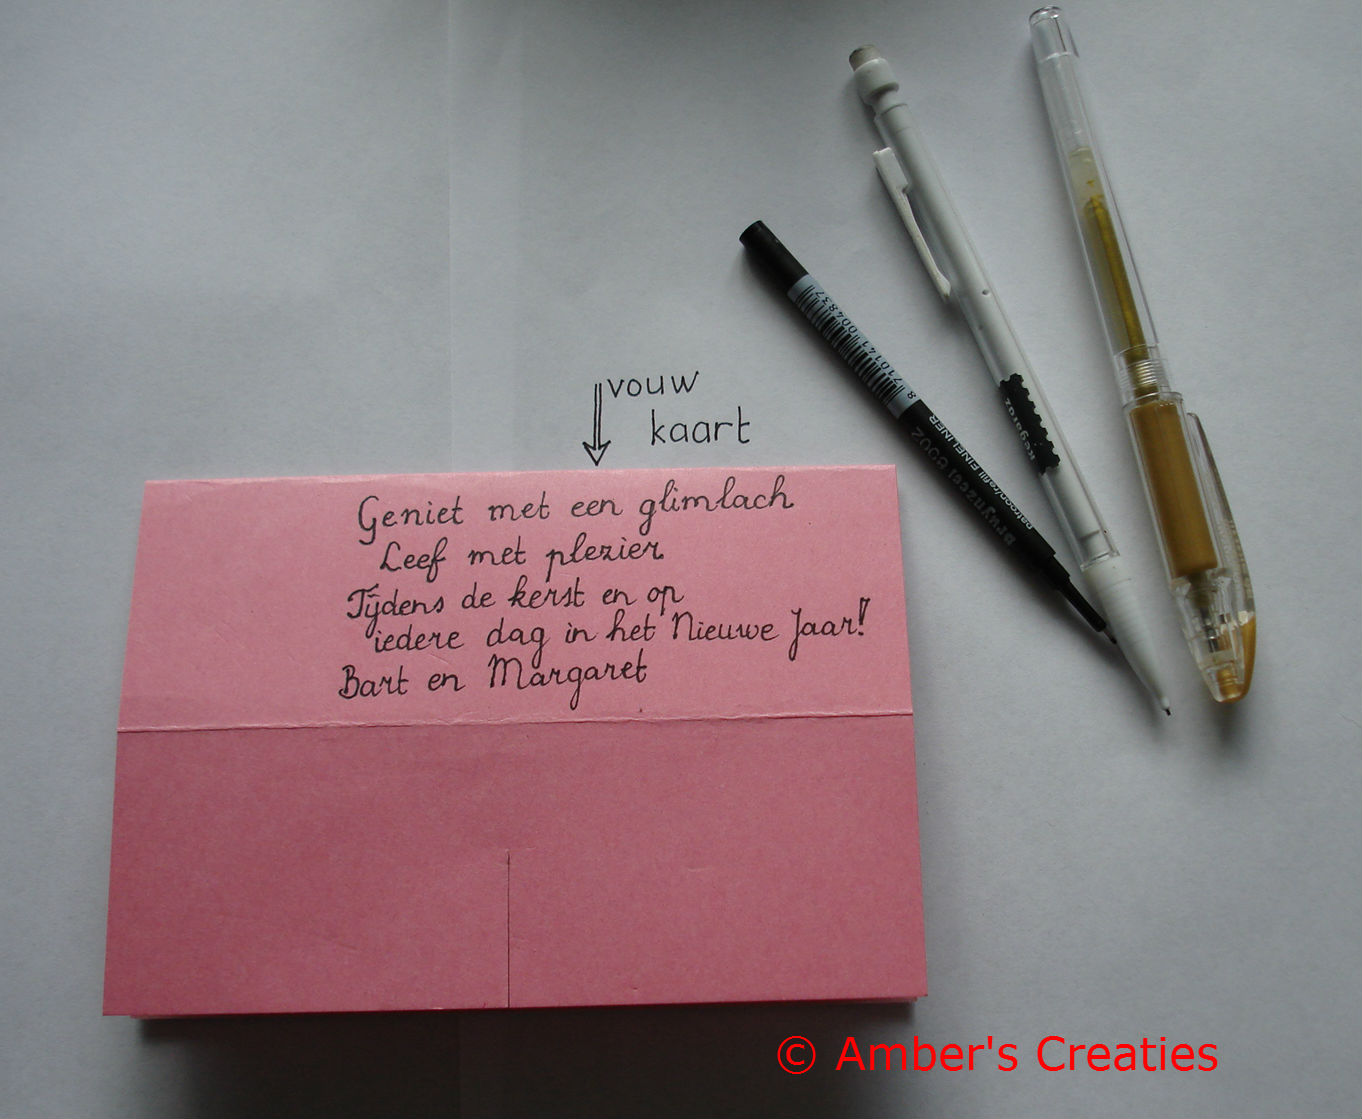 vouw
kaart
Geniet met een glimlach
Leef met plezier
Tijdens de kerst en op
iedere dag in het Nieuwe Jaar!
Bart en Margaret
8 710141 004837
bruynzeel 6002
patroon/refill FINELINER
© Amber's Creaties